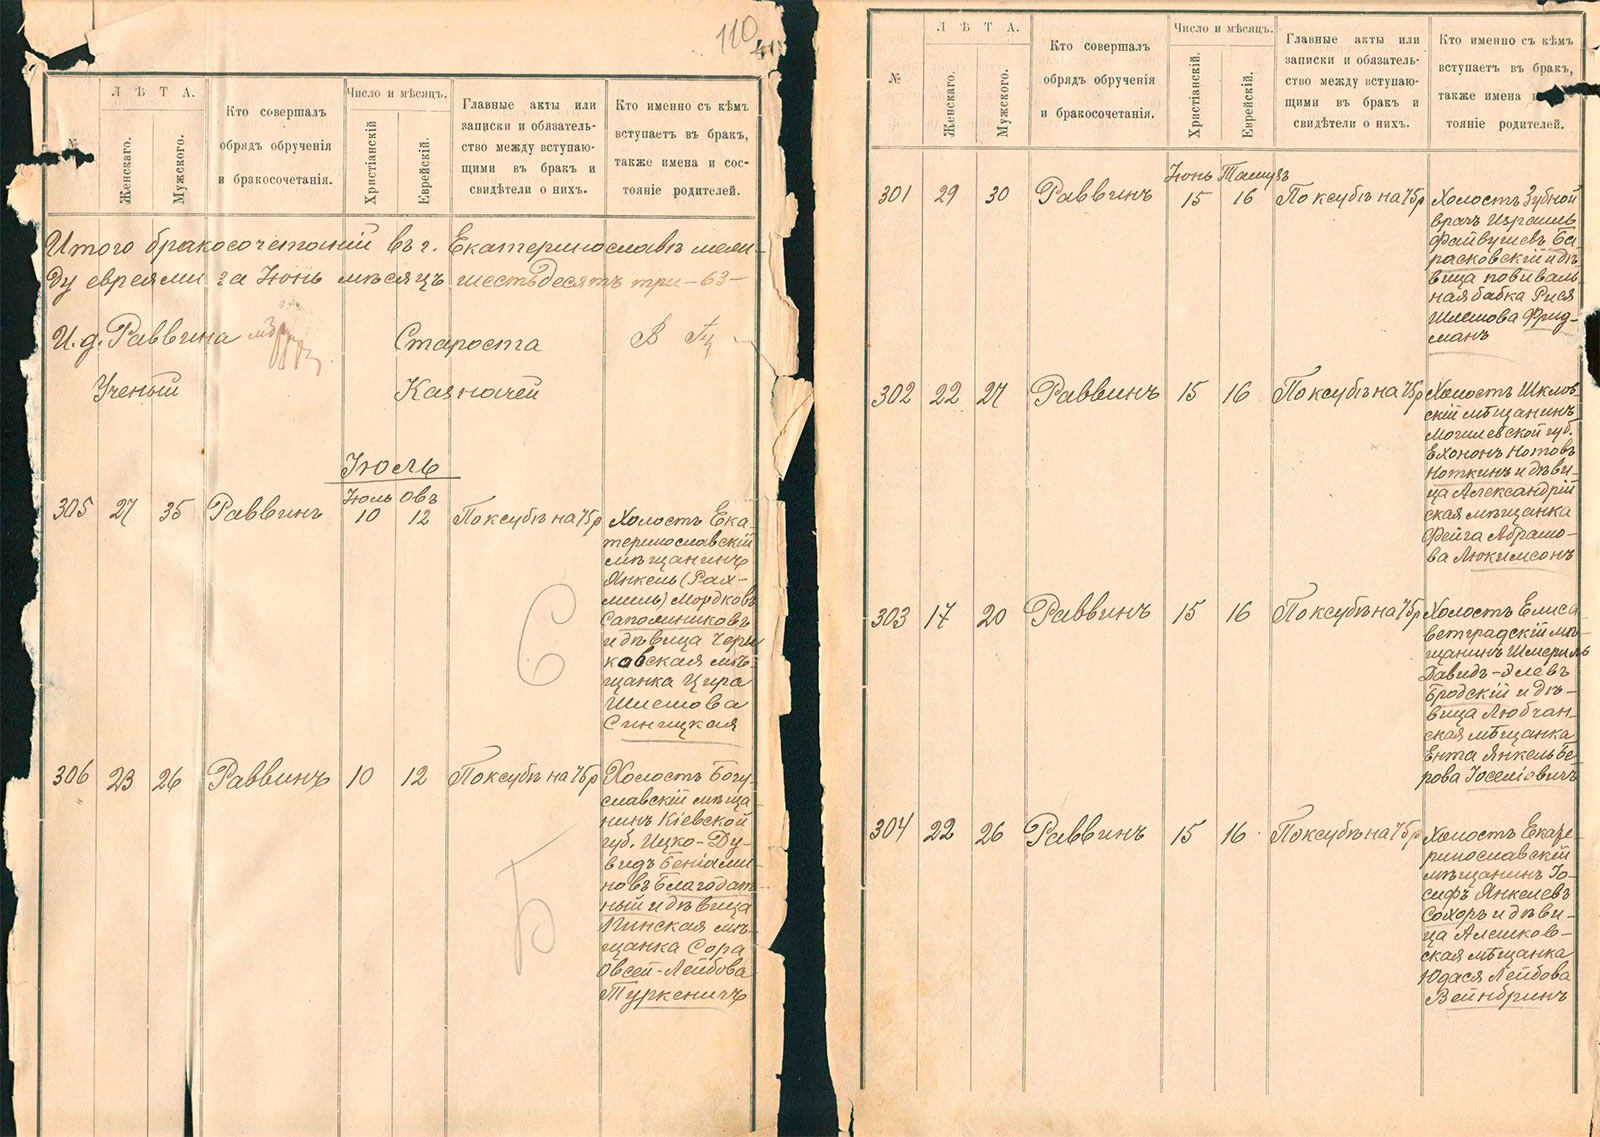 110
№
ЛѢТА.
Женскаго.
Мужскаго.
Кто совершалъ
обрядъ обрученія
и бракосочетанія.
Число и мѣсяцъ.
Христіанскій
Еврейскій.
Главные акты или
записки и обязатель-
ство между вступаю-
щими въ бракъ и
свидѣтели о нихъ.
Кто именно съ кѣмъ
вступаетъ въ бракъ,
также имена и сос-
тояніе родителей.
Итого бракосочетаній въ г. Екатеринославѣ меж-
ду евреями за Іюнь мѣсяцъ шестьдесятъ три-63-
И. д. Раввина Староста
Ученый Казначей
Іюль
Іюль Овъ
305 27 35 Раввинъ 10 12 По ксубѣ на 75 р
Холостъ Ека-
теринославскій
мѣщанинъ
Янкель (Рах-
миль) Мордковъ
Сапожниковъ
и дѣвица Чери-
ковская мѣ-
щанка Цира
Шлемова
Синицкая
С
306 23 26 Раввинъ 10 12 По ксубѣ на 75 р
Холостъ Богу-
славскій мѣща
нинъ Кіевской
губ. Ицко-Ду-
видъ Беніами-
новъ Благодат-
ный и дѣвица
Пинская мѣ-
щанка Сора
Овсей-Лейбова
Туркеничъ
Б
№
ЛѢТА.
Женскаго.
Мужскаго.
Кто совершалъ
обрядъ обрученія
и бракосочетанія.
Число и мѣсяцъ.
Христіанскій.
Еврейскій.
Главные акты или
записки и обязатель-
ство между вступаю-
щими въ бракъ и
свидѣтели о нихъ.
Кто именно съ кѣмъ
вступаетъ въ бракъ,
также имена и
тояніе родителей.
Іюнь Тамузъ
301 29 30 Раввинъ 15 16 По ксубѣ на 75 р
Холостъ Зубной
врачъ Израиль
Файвушевъ Ба-
расковскій и дѣ
вица повиваль
ная бабка Рися
Шлемова Фрид-
манъ
302 22 27 Раввинъ 15 16 По ксубѣ на 75 р
Холостъ Шклов-
скій мѣщанинъ
Могилевской губ.
Ехононъ Нотовъ
Ноткинъ и дѣви-
ца Александрій
ская мѣщанка
Фейга Абрамо-
ва Люкимсонъ
303 17 20 Раввинъ 15 16 По ксубѣ на 75 р
Холостъ Елиса
ветградскій мѣ-
щанинъ Шмериль
Давидъ-Элевъ
Бродскій и дѣ-
вица Любчан-
ская мѣщанка
Ента Янкель Бе-
рова Іоселіовичъ
304 22 26 Раввинъ 15 16 По ксубѣ на 75 р
Холостъ Екате-
ринославскій
мѣщанинъ Іо-
сифъ Янкелевъ
Сохоръ и дѣви-
ца Алешков-
ская мѣщанка
Юдася Лейбова
Вейнбринъ